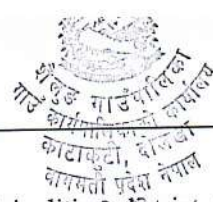 शैलुङ गाउँपालिका
गाउँ कार्यपालिकाको कार्यालय
काटाकुटी, दोलखा
वागमती प्रदेश नेपाल